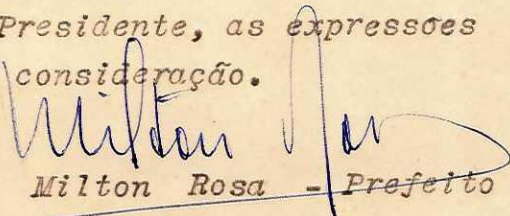 Presidente, as expressões
consideração.
Milton Rosa
Milton Rosa - Prefeito